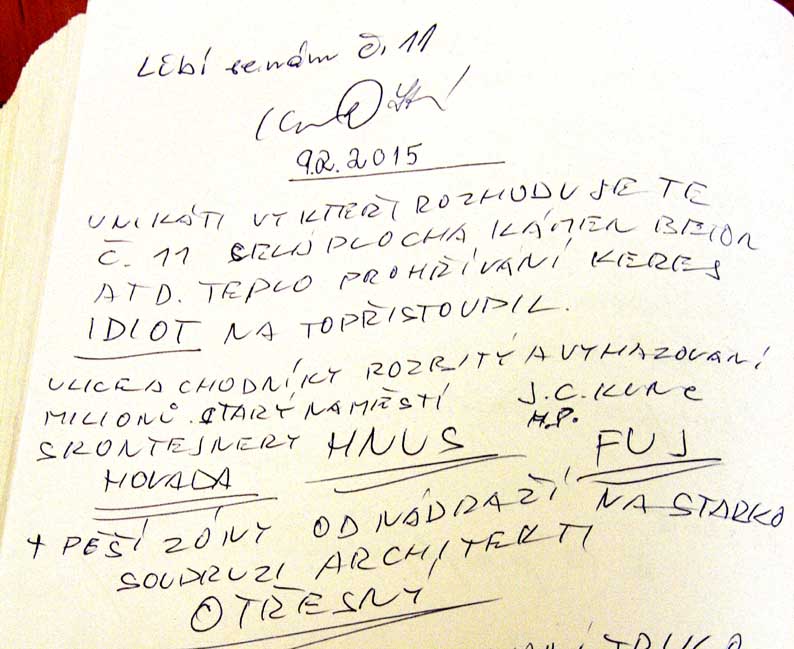 LEbí se nám č. 11
9.2.2015
UNIKÁTI VY KTEŘÍ ROZHODUJETE
Č. 11 PLOCHA KÁMEN BETON
ATD. TEPLO PROHŘÍVÁNÍ KERES
IDIOT NA TOPŘISTOUPIL.
ULICE A CHODNÍKY ROZBITÝ A VYHAZOVÁNÍ
MILIONŮ. STARÝ NÁMĚSTÍ J.C.
SKONTEJNERY HNUS FUJ
HOVADA
+ PĚŠÍ ZÓNY OD NÁDRAŽÍ NA STARKO
SOUDRUZI ARCHITEKTI
OTŘESNÝ